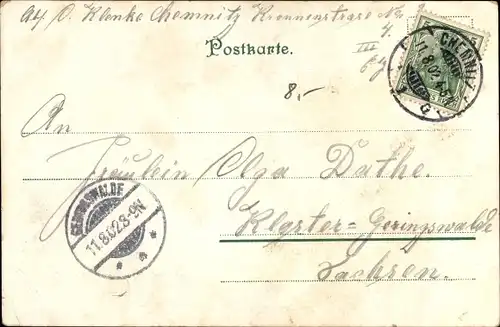 O. Klenke Chemnitz Kronenstrasse No.
Postkarte.
III
8,-
CHEMNITZ
11.8.02
An
Fräulein Olga Dathe.
Klgster-Geringswalde
Sachsen.
GERINGSWALDE
11.8.02 8-9N